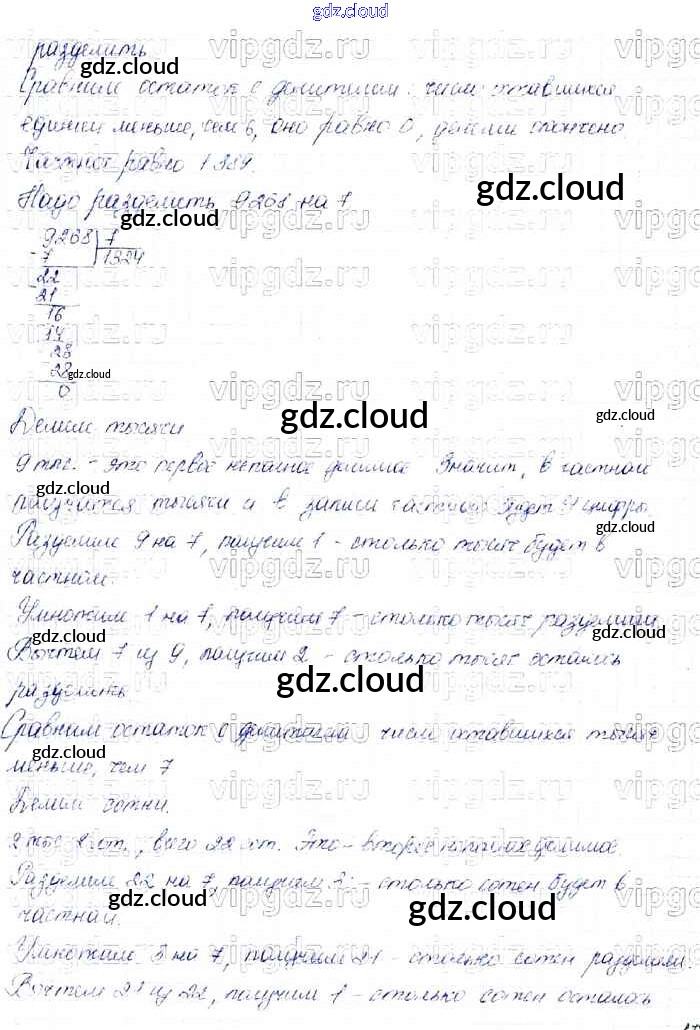 gdz.cloud
разделить
Сравним остаток с делителем: число оставшихся
единиц меньше, чем 6, оно равно 0, деление окончено
Частное равно 1389.
Надо разделить 9268 на 7
9268 7
7 1324
22
21
16
14
28
28
0
Делим тысячи
9 тыс. - это первое неполное делимое Значит, в частном
получатся тысячи и в записи частного будет 4 цифры.
Разделим 9 на 7, получим 1 - столько тысяч будет в
частном.
Умножим 1 на 7, получим 7 - столько тысяч разделили
Вычтем 7 из 9, получим 2 - столько тысяч осталось
разделить
Сравним остаток с делителем число оставшихся тысяч
меньше, чем 7
Делим сотни.
2 тыс. 2 сот., всего 22 сот. Это - второе неполное делимое.
Разделим 22 на 7, получим 3 - столько сотен будет в
частном.
Умножим 3 на 7, получим 21 - столько сотен разделили.
Вычтем 21 из 22, получим 1 - столько сотен осталось